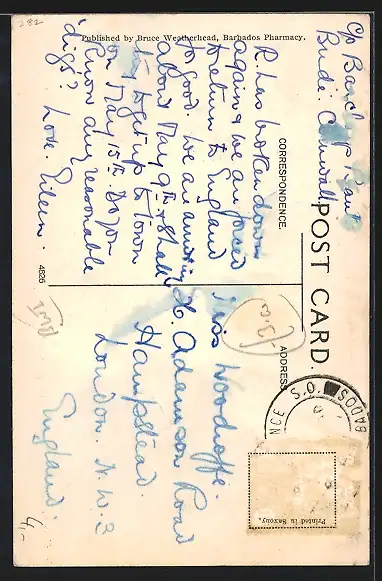 282
Published by Bruce Weatherhead, Barbados Pharmacy.
POST CARD.
CORRESPONDENCE.
ADDRESS
C/o Barclay's Bank
Bude. Cornwall.
R. has broken down
again & we are forced
to return to England
for good. We are arriving
about May 9th & shall
try to get up to town
on May 15th. Do you
know any reasonable
'digs'?
Love. Eileen.
Miss Woodroffe.
Adamson Road
Hampstead.
London. N.W.3
England
4826
BADOS
Printed in Saxony.
4/-